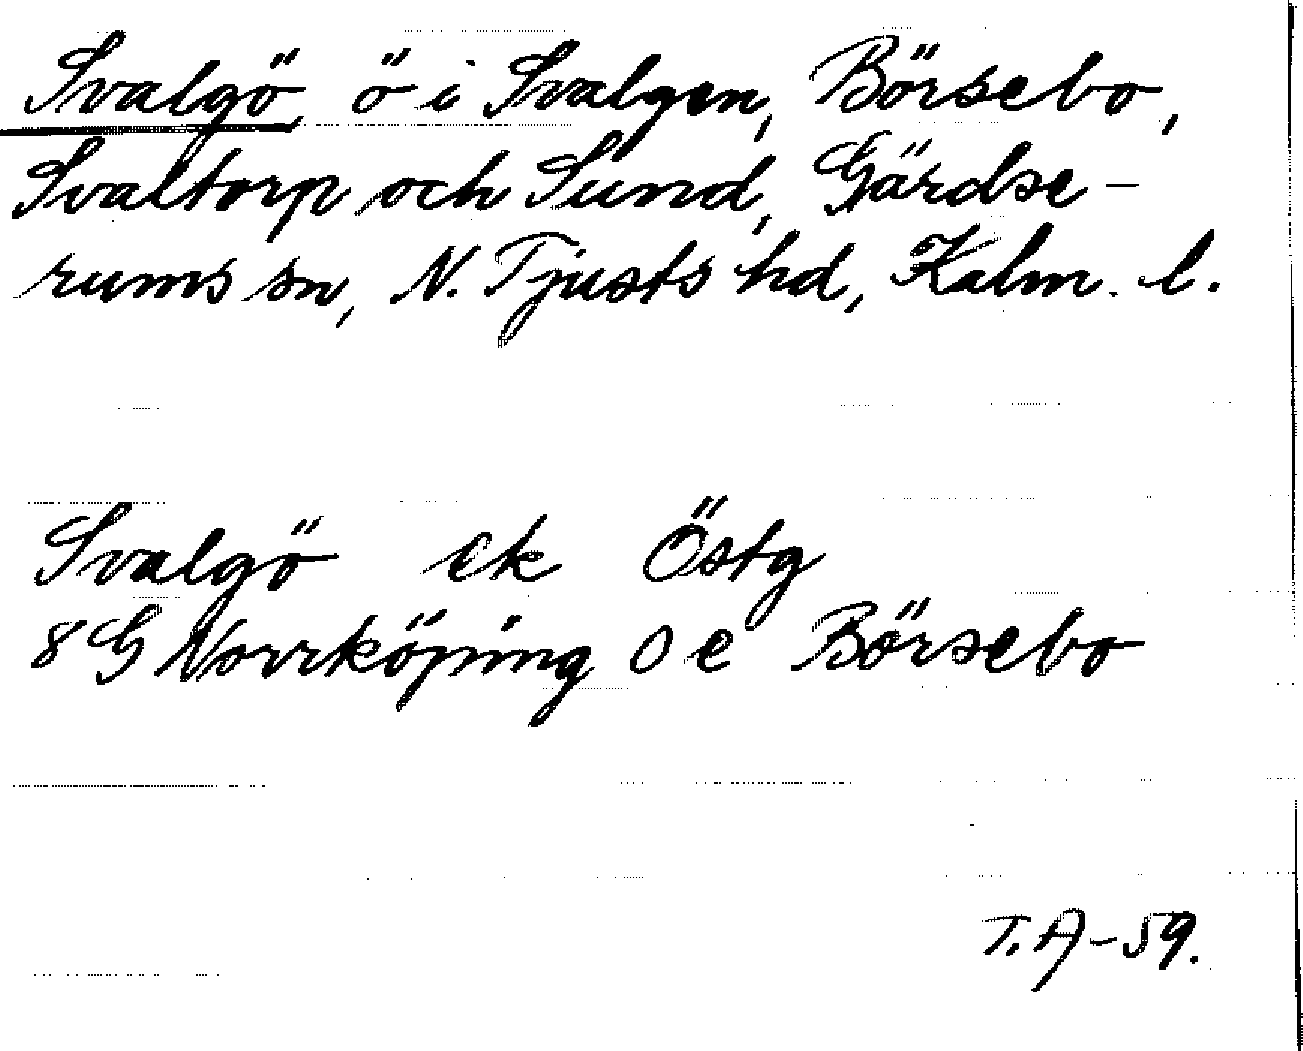 Svalgö, ö i Svalgen, Börsebo,
Svaltorp och Sund, Gärdse-
rums sn, N. Tjusts hd, Kalm. l.
Svalgö ek Östg
8 G Norrköping 0 e Börsebo
T.A-59.